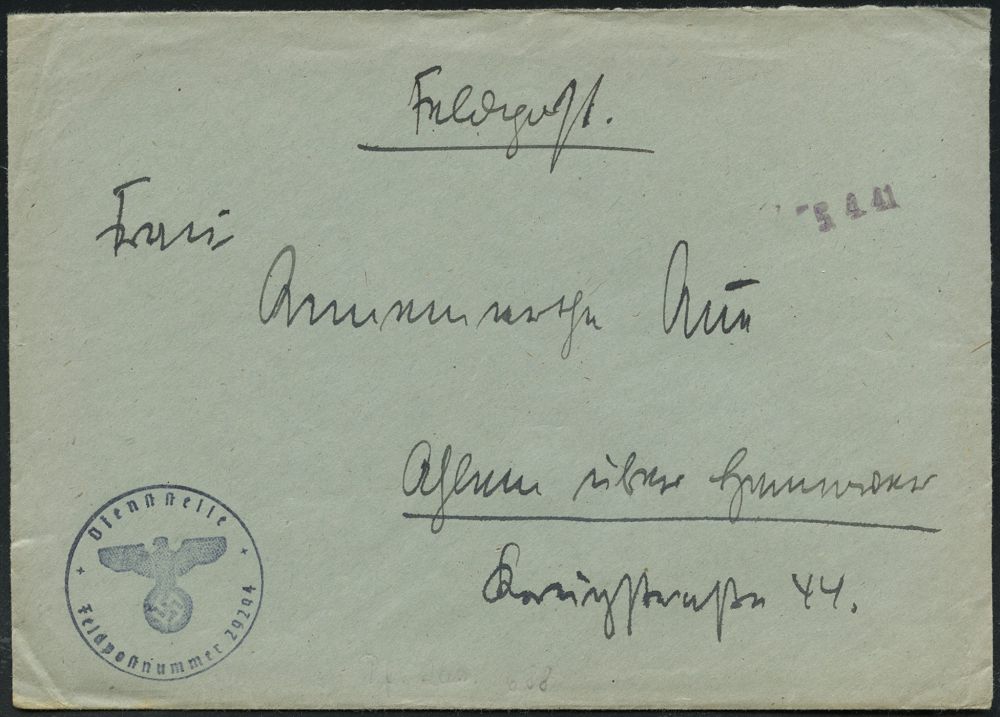 Feldpost.
5 4 41
Frau
Annemarthe Aue
Ahlem über Hannover
Kreuzstraße 44.
Dienststelle
Feldpostnummer 29294